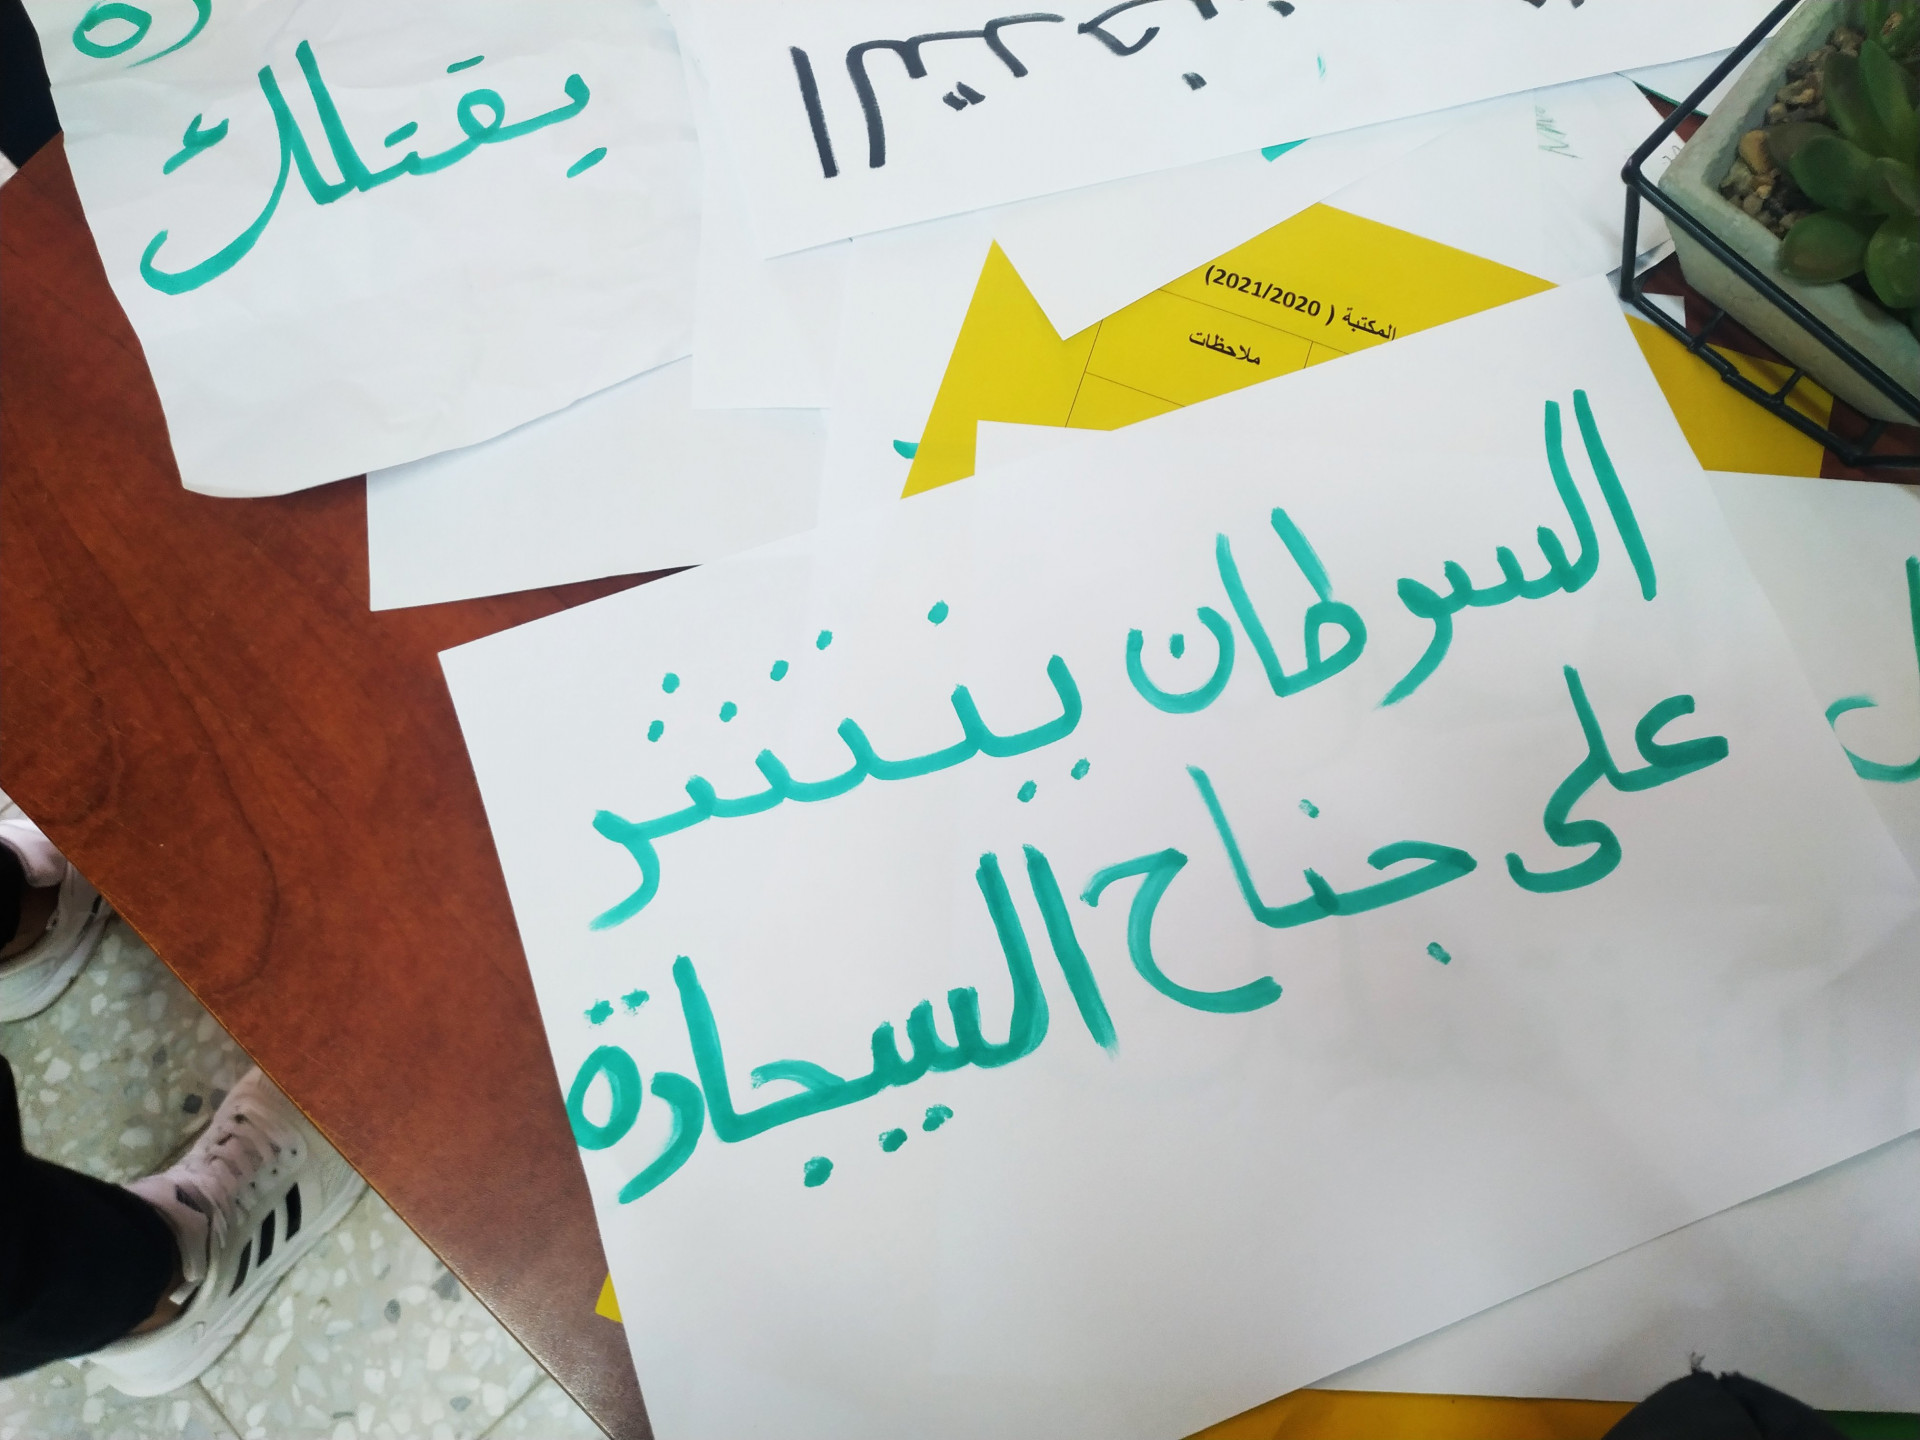 يقتلك
المكتبة ( 2021/2020)
ملاحظات
السرطان ينتشر
على جناح السيجارة